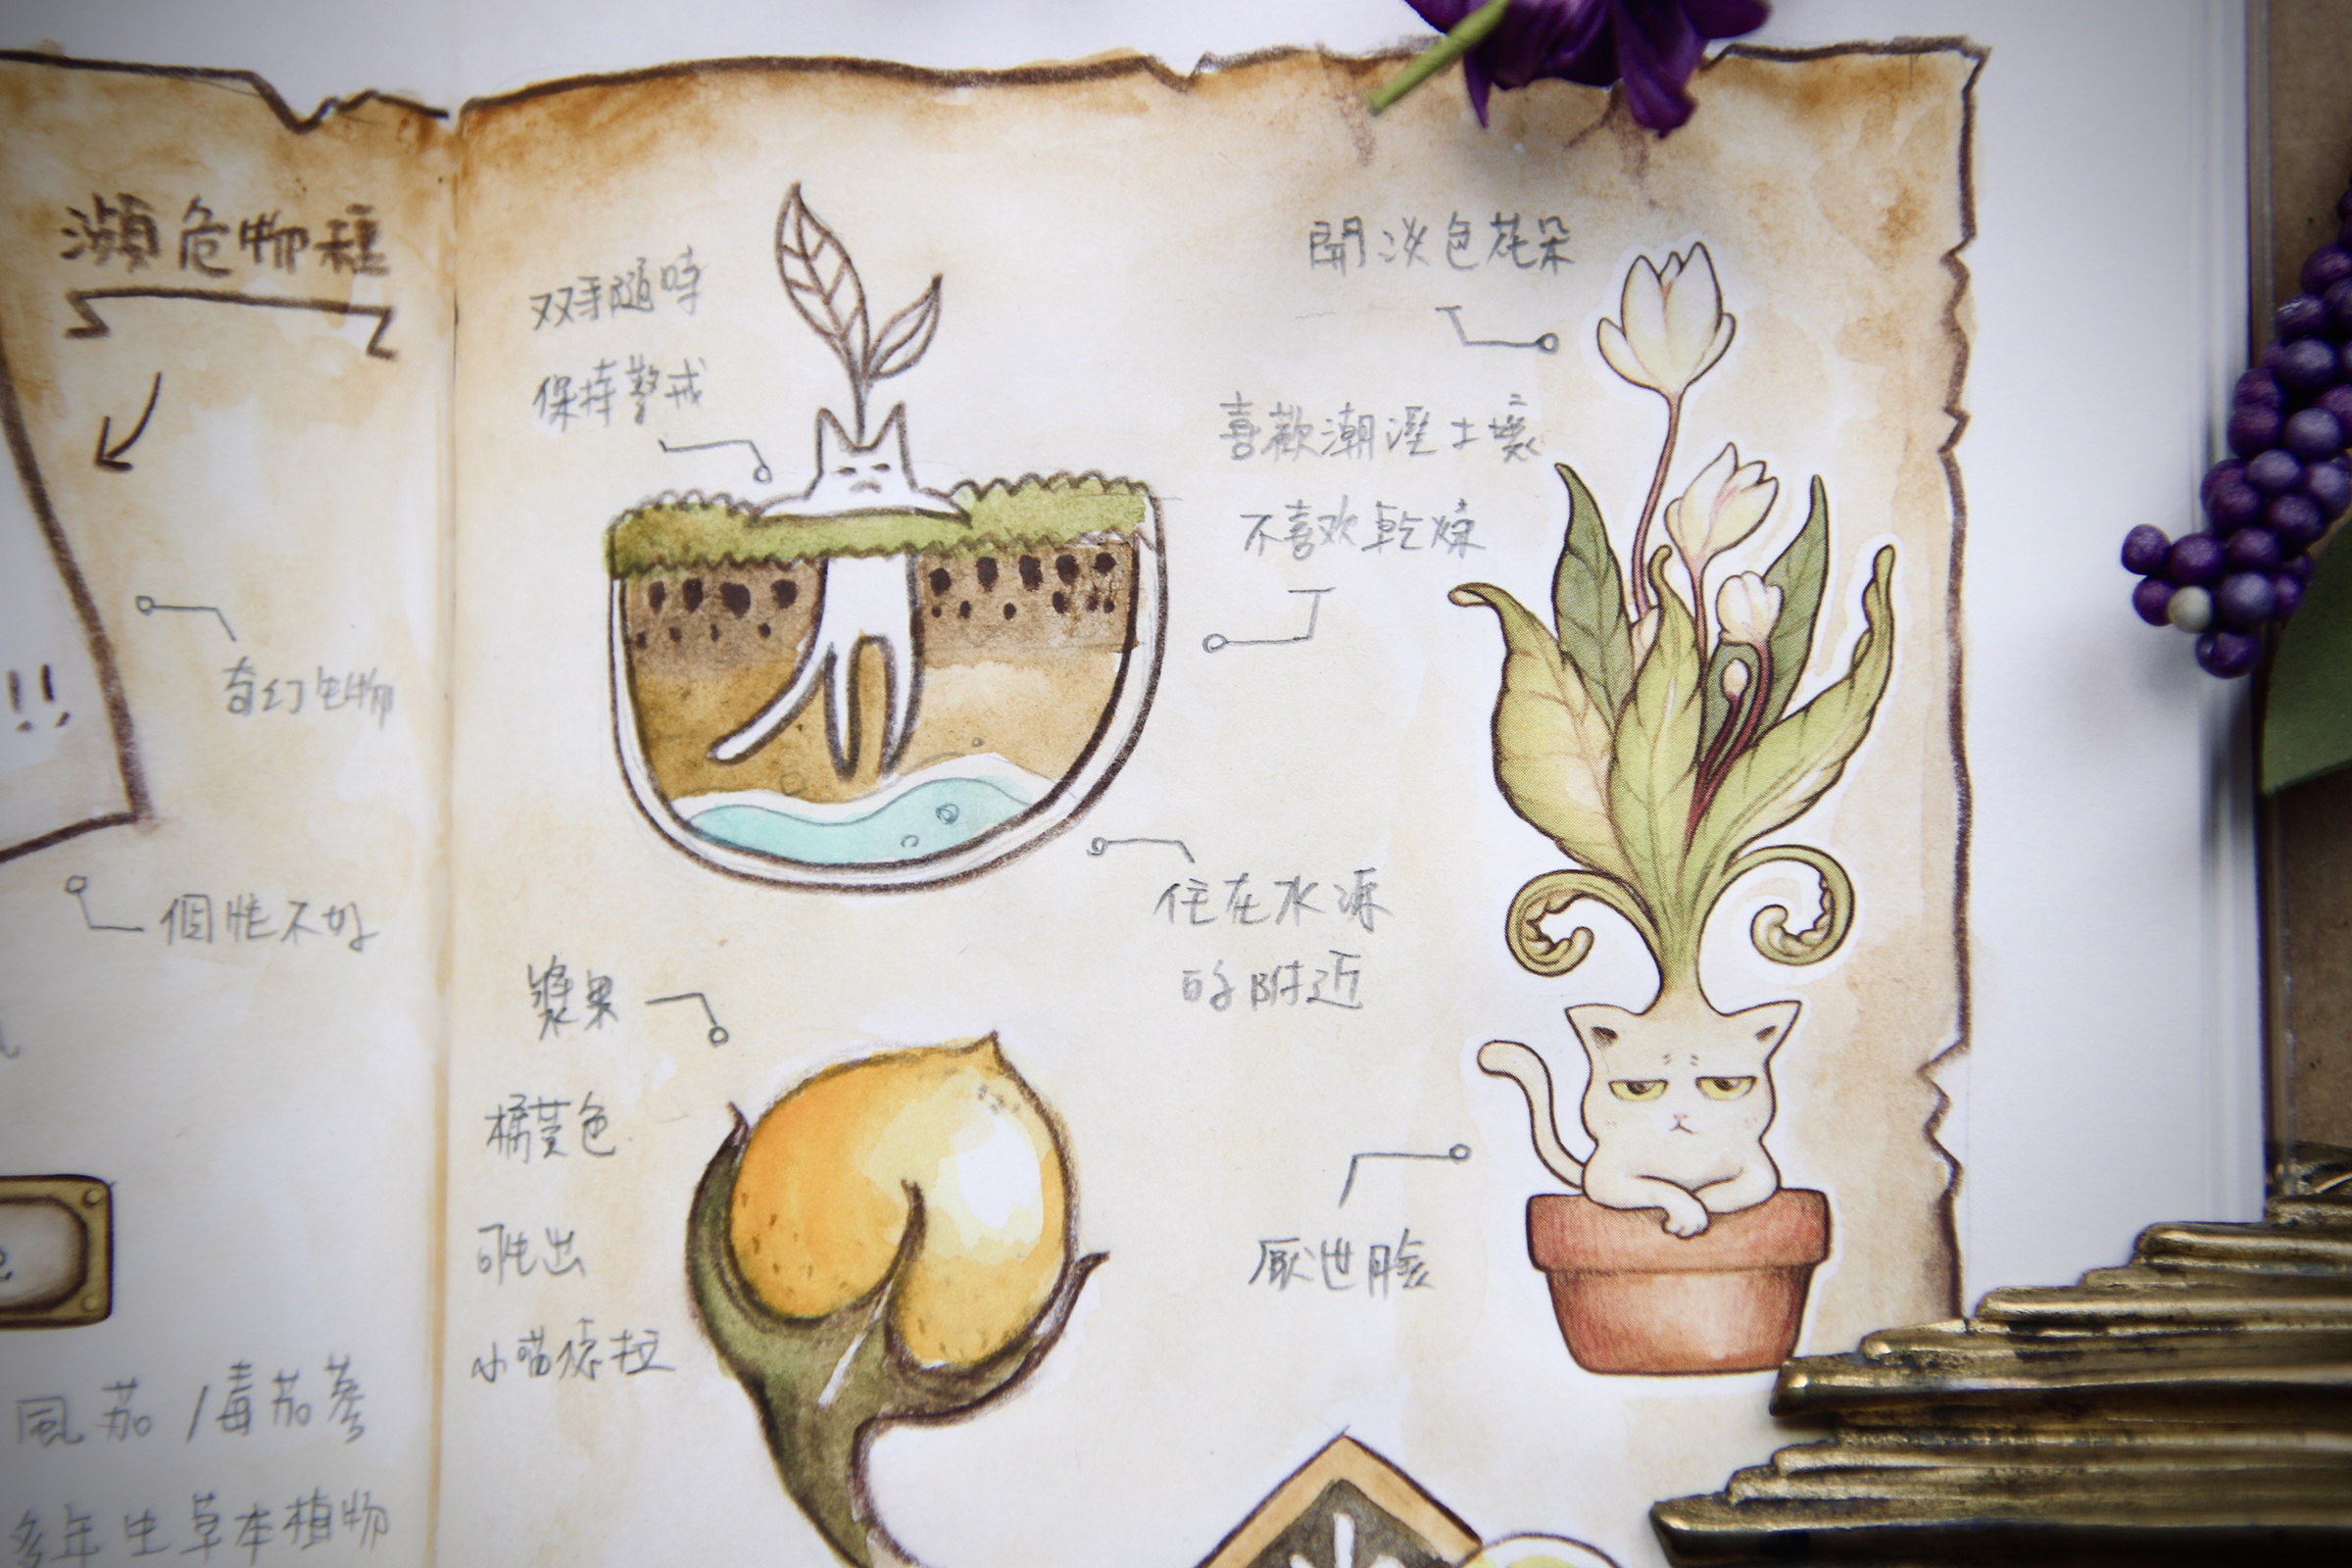 瀕危物種
!!
奇幻生物
個性不好
風茄/毒茄蔘
多年生草本植物
双手隨時
保持警戒
開淡色花朵
喜歡潮溼土壤
不喜欢乾燥
住在水源
的附近
漿果
橘黃色
可吐出
小喵德拉
厭世臉